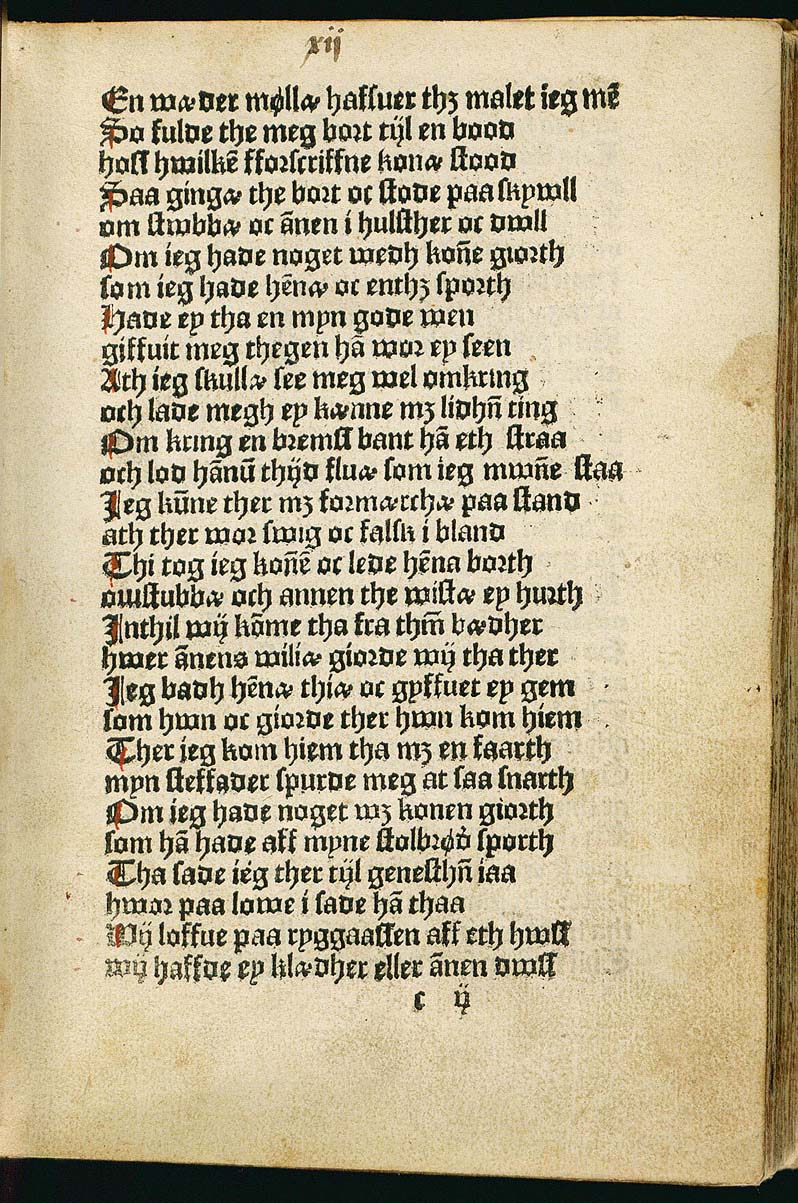 xij
En wæder møllæ haffuer thꝫ malet ieg mē
So fulde the meg bort tijl en bood
hoss hwilkē fforscriffne konæ stood
Saa gingæ the bort oc stode paa skywll
om stwbbæ oc ānen i hulsther oc dwll
Om ieg hade noget wedh kon̄e giorth
som ieg hade hēnæ oc enthꝫ sporth
Hade ey tha en myn gode wen
giffuit meg thegen hā wor ey seen
Ath ieg skullæ see meg wel omkring
och lade megh ey kænne mꝫ lidhn̄ ting
Om kring en bremss bant hā eth straa
och lod hānū thijd fluæ som ieg mwn̄e staa
Jeg kūne ther mꝫ formærchæ paa stand
ath ther wor swig oc falsk i bland
Thi tog ieg kon̄ē oc lede hēna borth
owstubbæ och annen the wistæ ey hurth
Jnthil wij kōme tha fra thm̄ bædher
hwer ānens wiliæ giorde wij tha ther
Jeg badh hēnæ thiæ oc gyffuet ey gem
som hwn oc giorde ther hwn kom hiem
Ther ieg kom hiem tha mꝫ en faarth
myn steffader spurde meg at saa snarth
Om ieg hade noget wꝫ konen giorth
som hā hade aff myne stolbrød̄ sporth
Tha sade ieg ther tijl genesthn̄ iaa
hwor paa lowe i sade hā thaa
Wij loffue paa ryggaassen aff eth hwss
wij haffde ey klædher eller ānen dwss
c ij